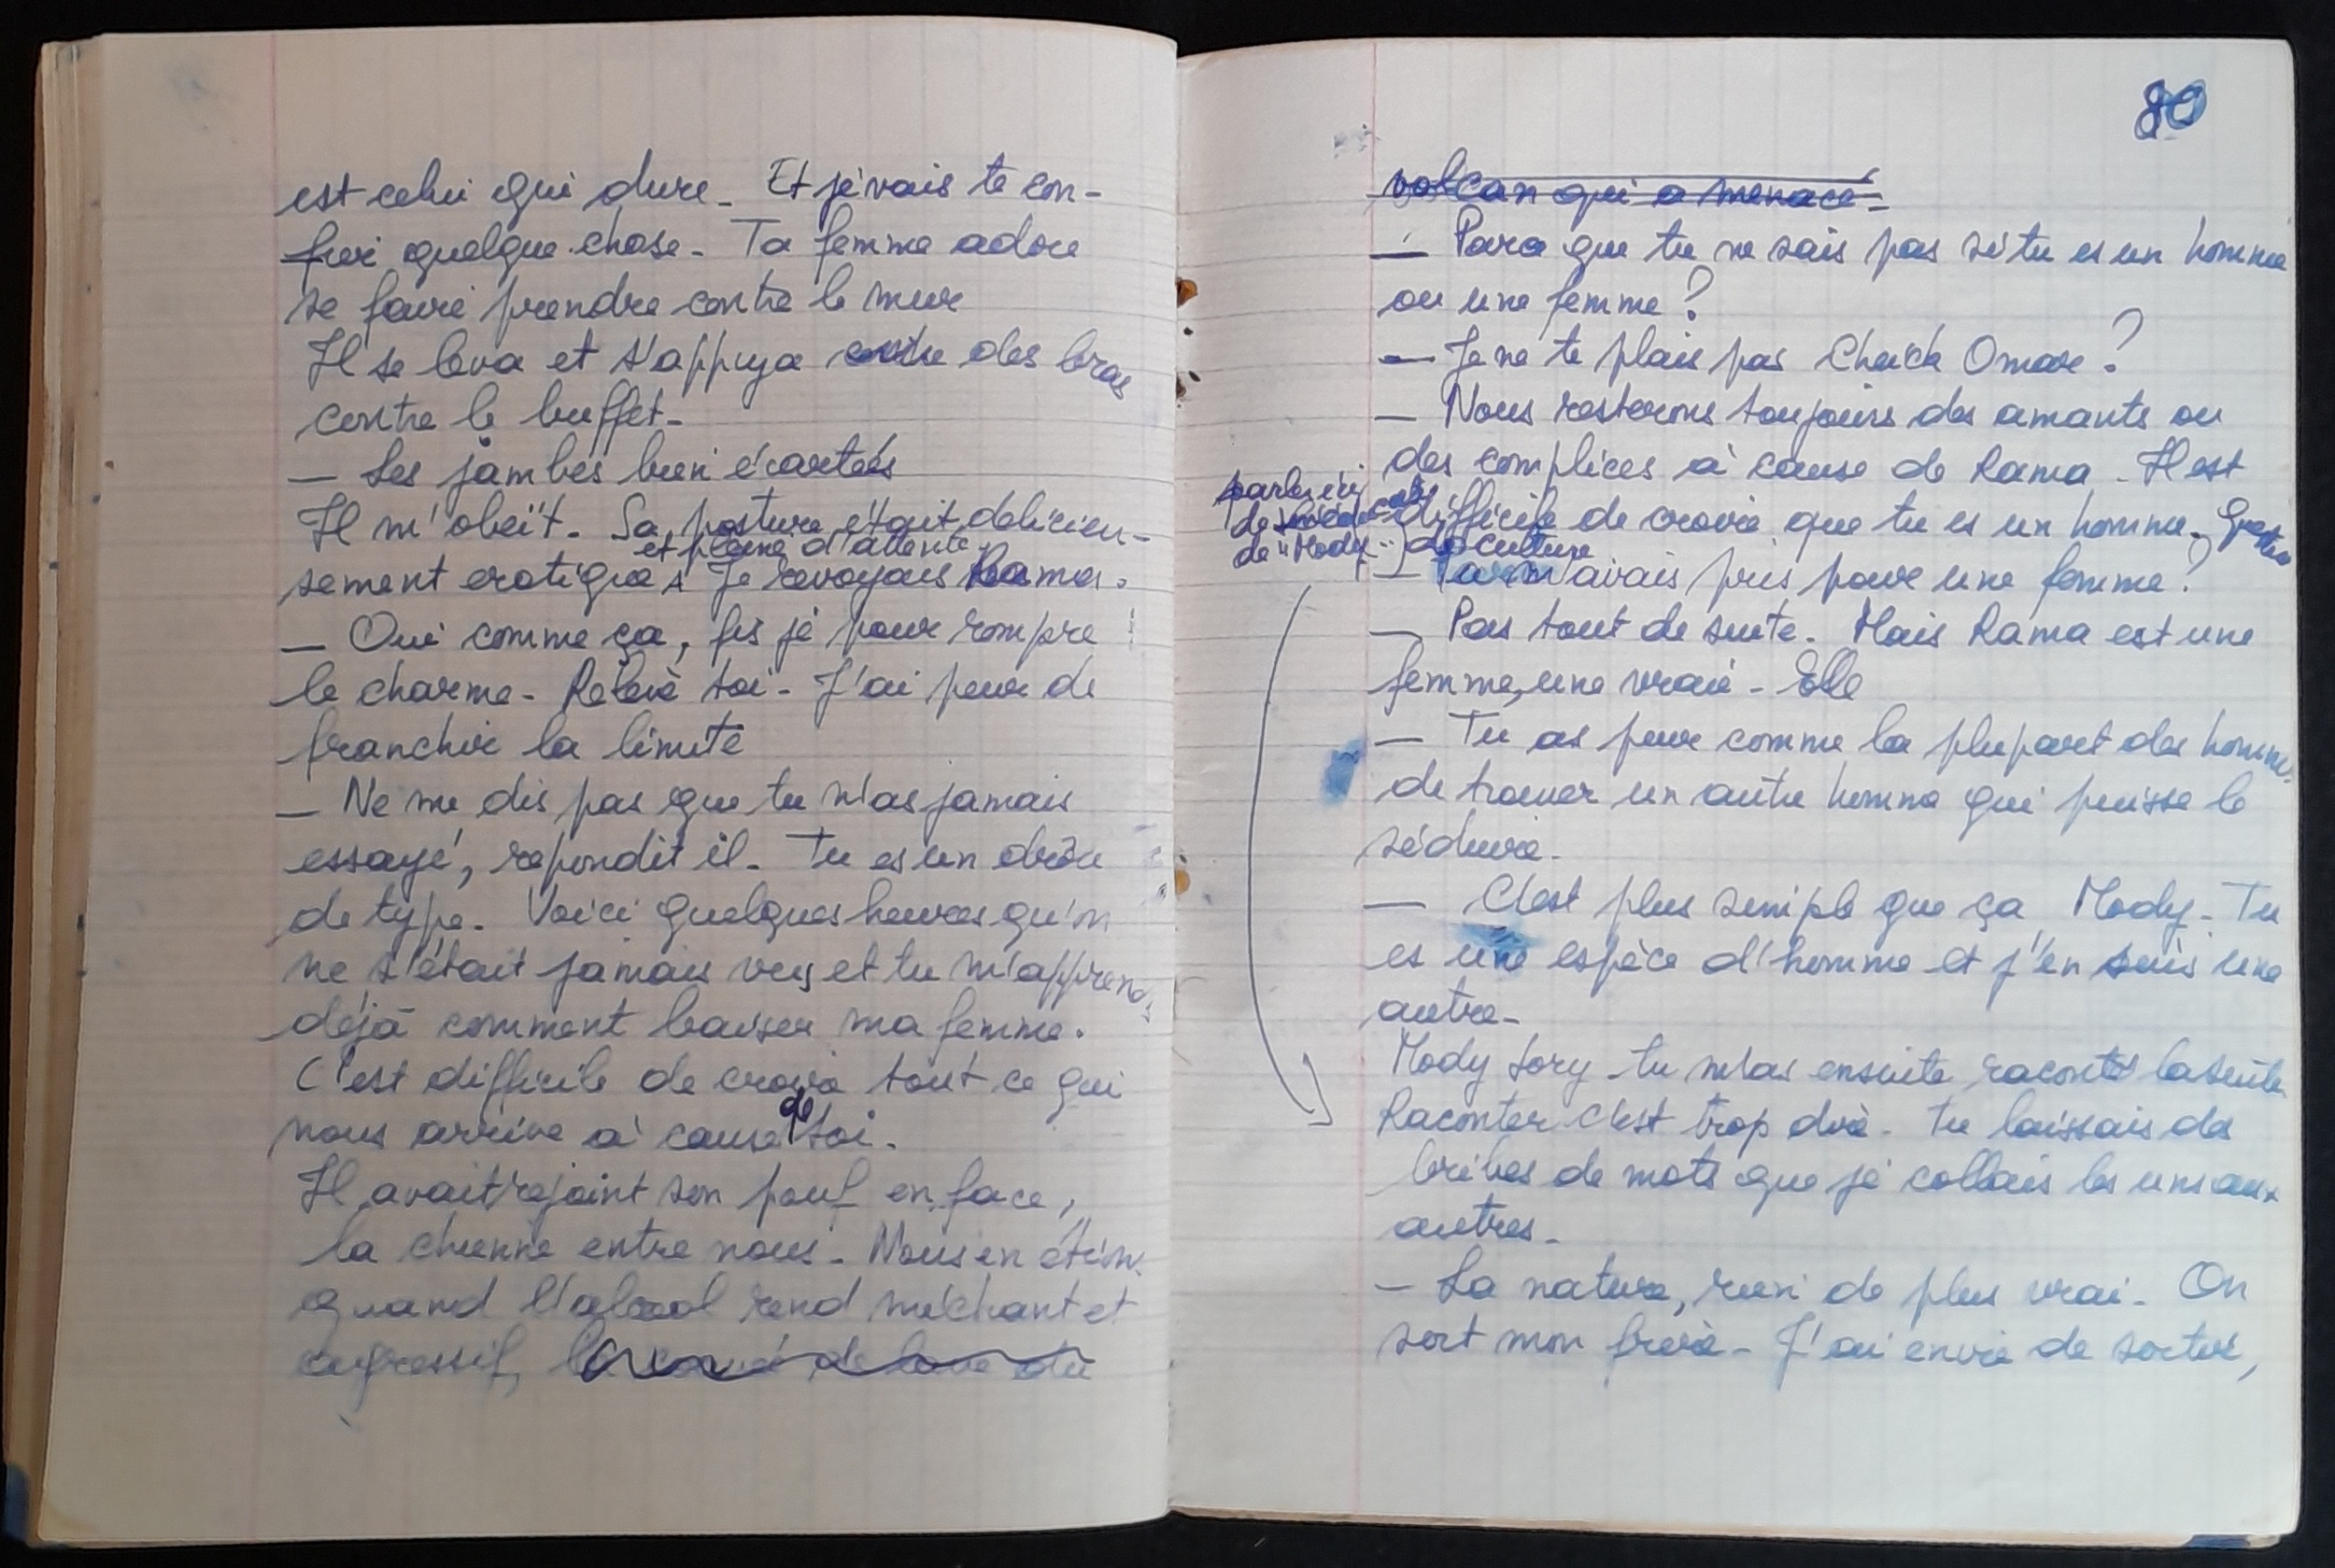 est celui qui dure. Et je vais te con-
fier quelque chose. Ta femme adore
se faire prendre contre le mur
Il se leva et s'appuya des bras
contre le buffet.
— Les jambes bien écartées
Il m'obéit. Sa posture était délicieu-
et pleine d'attente
sement erotique. Je revoyais Rama.
— Oui comme ça, fis je pour rompre
le charme. Relève toi. J'ai peur de
franchir la limite
— Ne me dis pas que tu n'as jamais
essayé, repondit il. Tu es un drôle
de type. Voici quelques heures qu'on
ne s'était jamais vus et tu m'apprends
déjà comment baiser ma femme.
C'est difficile de croire tout ce qui
nous arrive à cause de toi.
Il avait rejoint son pouf en face,
la chienne entre nous. Nous en étions
quand l'alcool rend méchant et
agressif, de lave du
80
volcan qui a menacé.
— Parce que tu ne sais pas si tu es un homme
ou une femme ?
— Je ne te plais pas Cheick Omar ?
— Nous resterons toujours des amants ou
des complices à cause de Rama. Il est
difficile de croire que tu es un homme.
parler ici
de
de "Mody"
de culture
— Tu m'avais pris pour une femme ?
— Pas tout de suite. Mais Rama est une
femme, une vraie. Elle
— Tu as peur comme la plupart des hommes
de trouver un autre homme qui puisse le
séduire.
— C'est plus simple que ça Mody. Tu
es une espèce d'homme et j'en suis une
autre.
Mody Sory tu m'as ensuite raconté la suite
Raconter c'est trop dire. Tu laissais des
bribes de mots que je collais les uns aux
autres.
— La nature, rien de plus vrai. On
sort mon frère. J'ai envie de sortir,